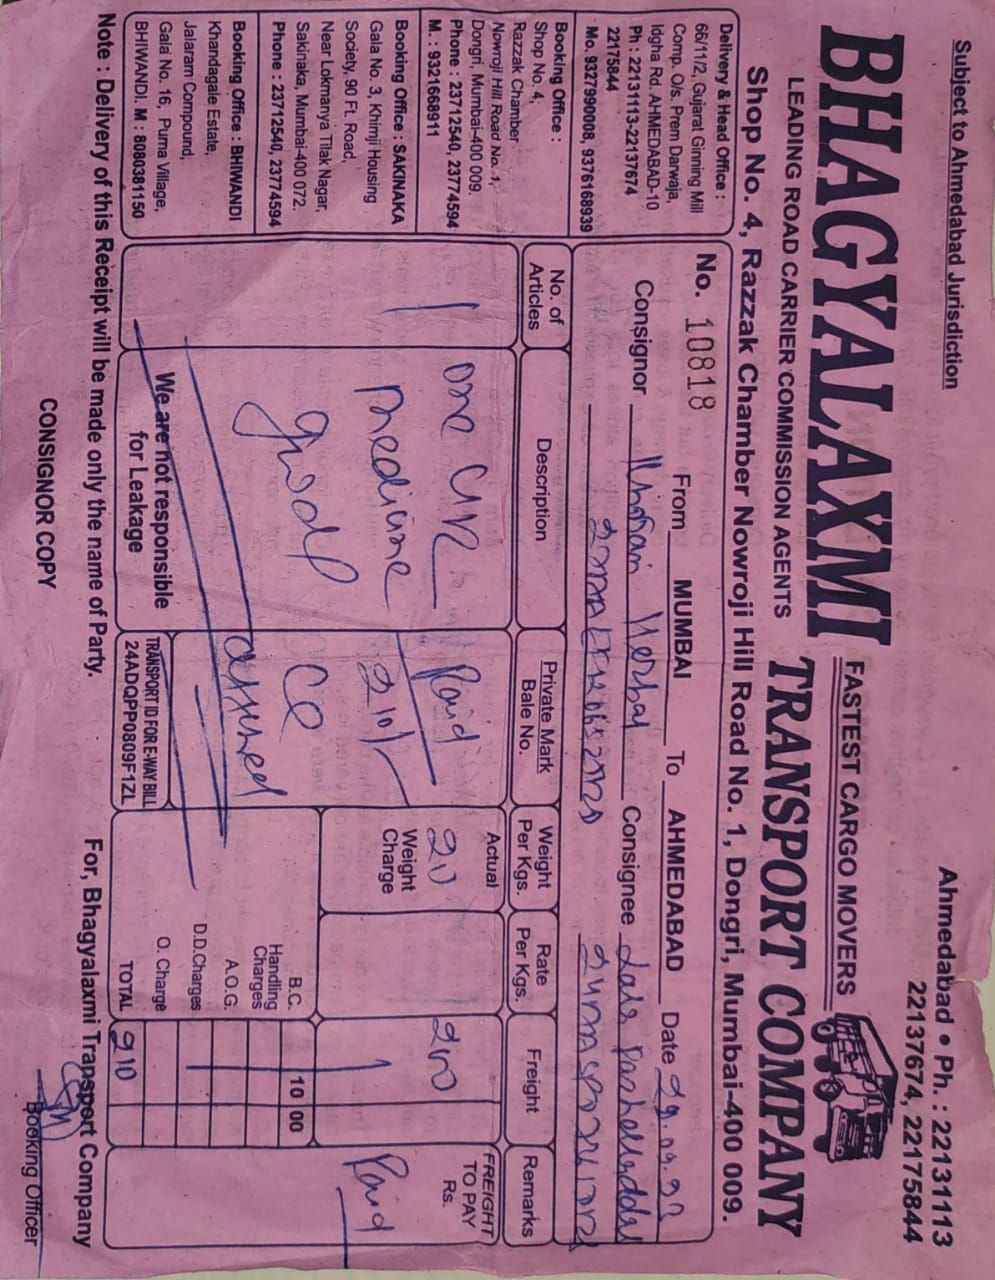 Subject to Ahmedabad Jurisdiction
Ahmedabad • Ph. : 22131113
22137674, 22175844
BHAGYALAXMI
FASTEST CARGO MOVERS
TRANSPORT COMPANY
LEADING ROAD CARRIER COMMISSION AGENTS
Shop No. 4, Razzak Chamber Nowroji Hill Road No. 1, Dongri, Mumbai-400 009.
Delivery & Head Office :
66/11/2, Gujarat Ginning Mill
Comp. O/s. Prem Darwaja,
Idgha Rd. AHMEDABAD-10
Ph : 22131113-22137674
22175844
Mo. 9327990008, 9376168939
Booking Office :
Shop No. 4,
Razzak Chamber
Nowroji Hill Road No. 1,
Dongri, Mumbai-400 009.
Phone : 23712540, 23774594
M. : 9321668911
Booking Office : SAKINAKA
Gala No. 3, Khimji Housing
Society, 90 Ft. Road,
Near Lokmanya Tilak Nagar,
Sakinaka, Mumbai-400 072.
Phone : 23712540, 23774594
Booking Office : BHIWANDI
Khandagale Estate,
Jalaram Compound,
Gala No. 16, Purna Village,
BHIWANDI. M : 8080381150
No. 10818 From MUMBAI To AHMEDABAD Date
Consignor Herbal Consignee
No. of Articles
Description
Private Mark Bale No.
Weight Per Kgs.
Rate Per Kgs.
Freight
Remarks
1
one
medicine
good
Paid
210/-
CC
Actual
20
Weight Charge
200
FREIGHT TO PAY Rs.
Paid
B.C. 10 00
Handling Charges
A.O.G.
D.D.Charges
O. Charge
TOTAL 210
We are not responsible
for Leakage
TRANSPORT ID FOR E-WAY BILL
24ADQPP0809F1ZL
Note : Delivery of this Receipt will be made only the name of Party.
For, Bhagyalaxmi Transport Company
CONSIGNOR COPY
Booking Officer